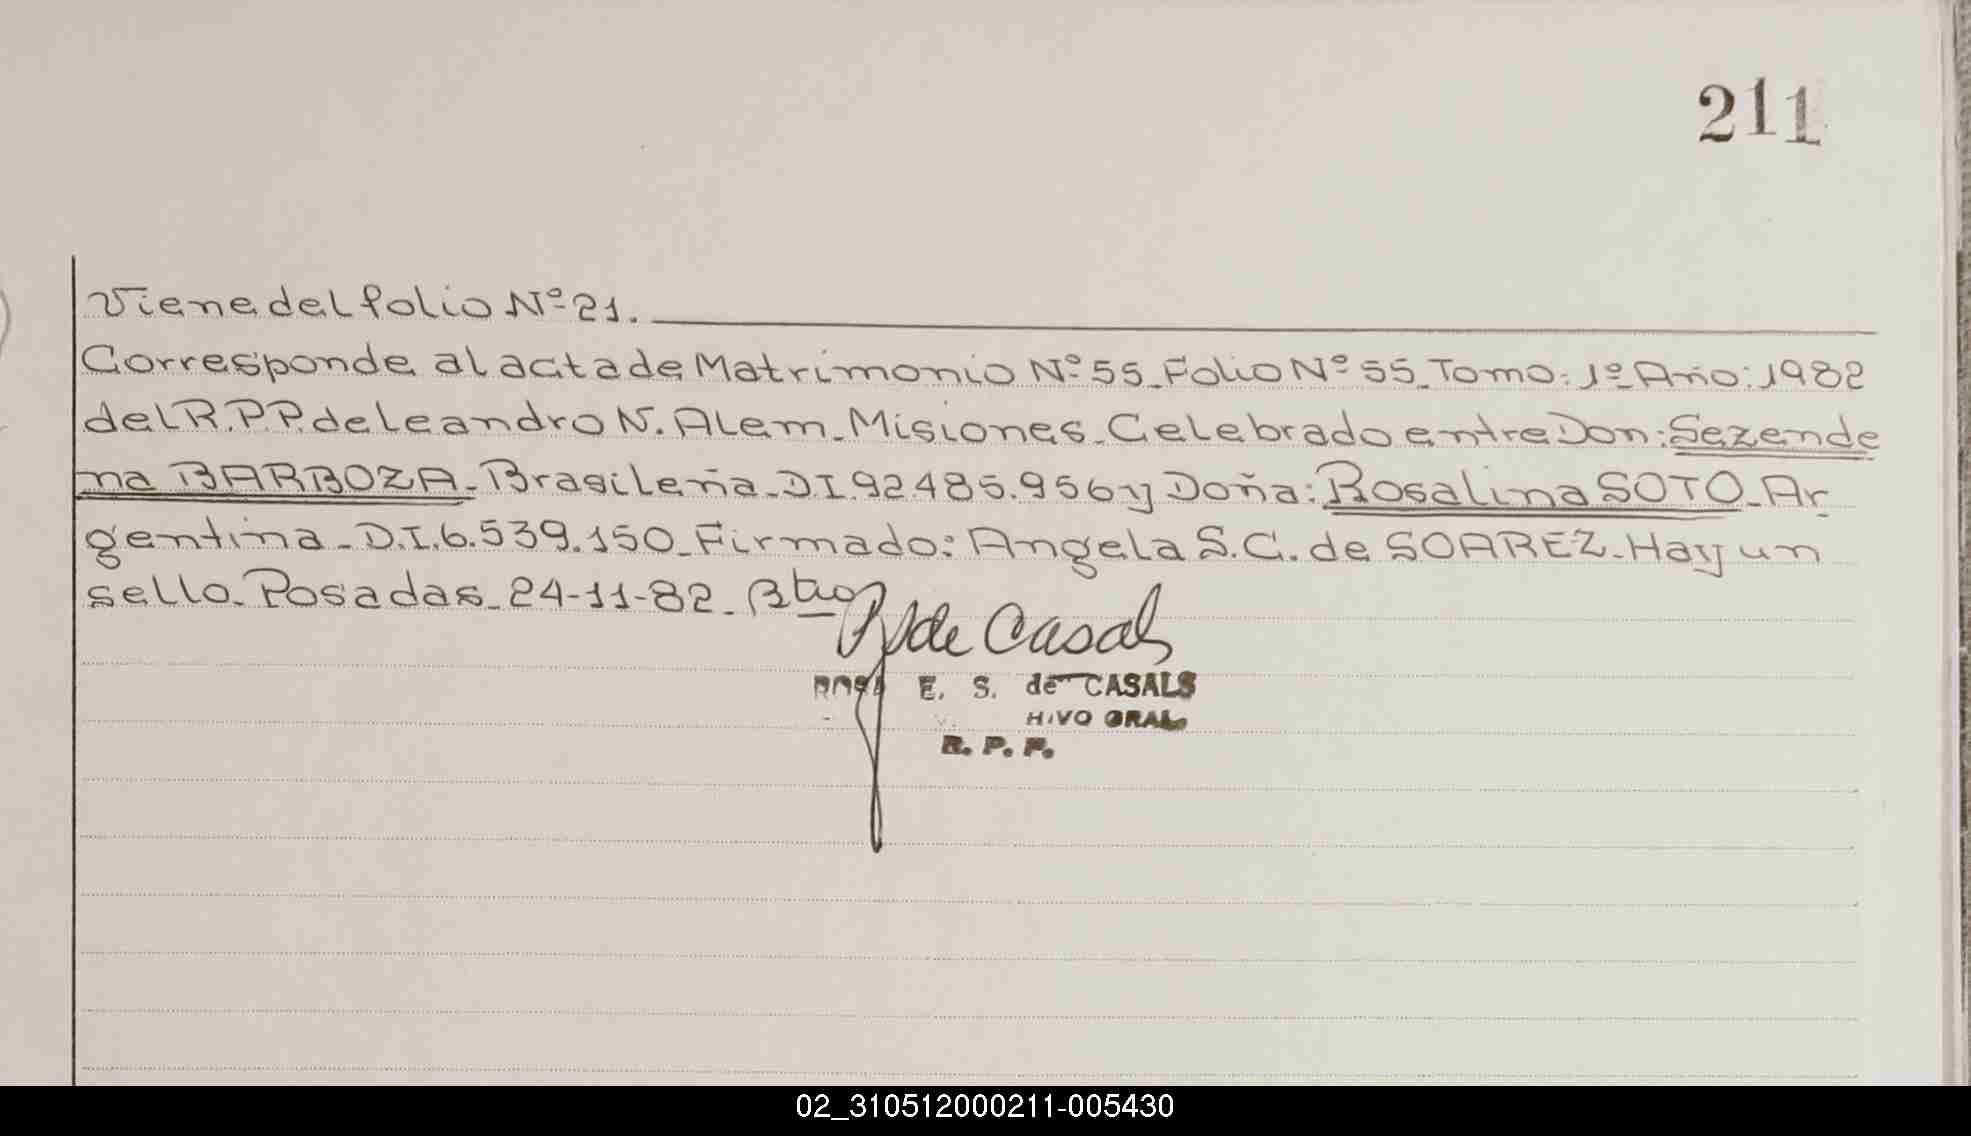 211
Viene del folio Nº 21.
Corresponde al acta de Matrimonio Nº 55. Folio Nº 55. Tomo: 1º Año: 1982
del R.P.P. de Leandro N. Alem. Misiones. Celebrado entre Don: Sezende
na BARBOZA. Brasileña. D.I. 92.485.956 y Doña: Rosalina SOTO. Ar
gentina. D.I. 6.539.150. Firmado: Angela S.C. de SOAREZ. Hay un
sello. Posadas. 24-11-82.
de Casals
E. S. de CASALS
HIVO GRAL.
R. P. P.
02_310512000211-005430